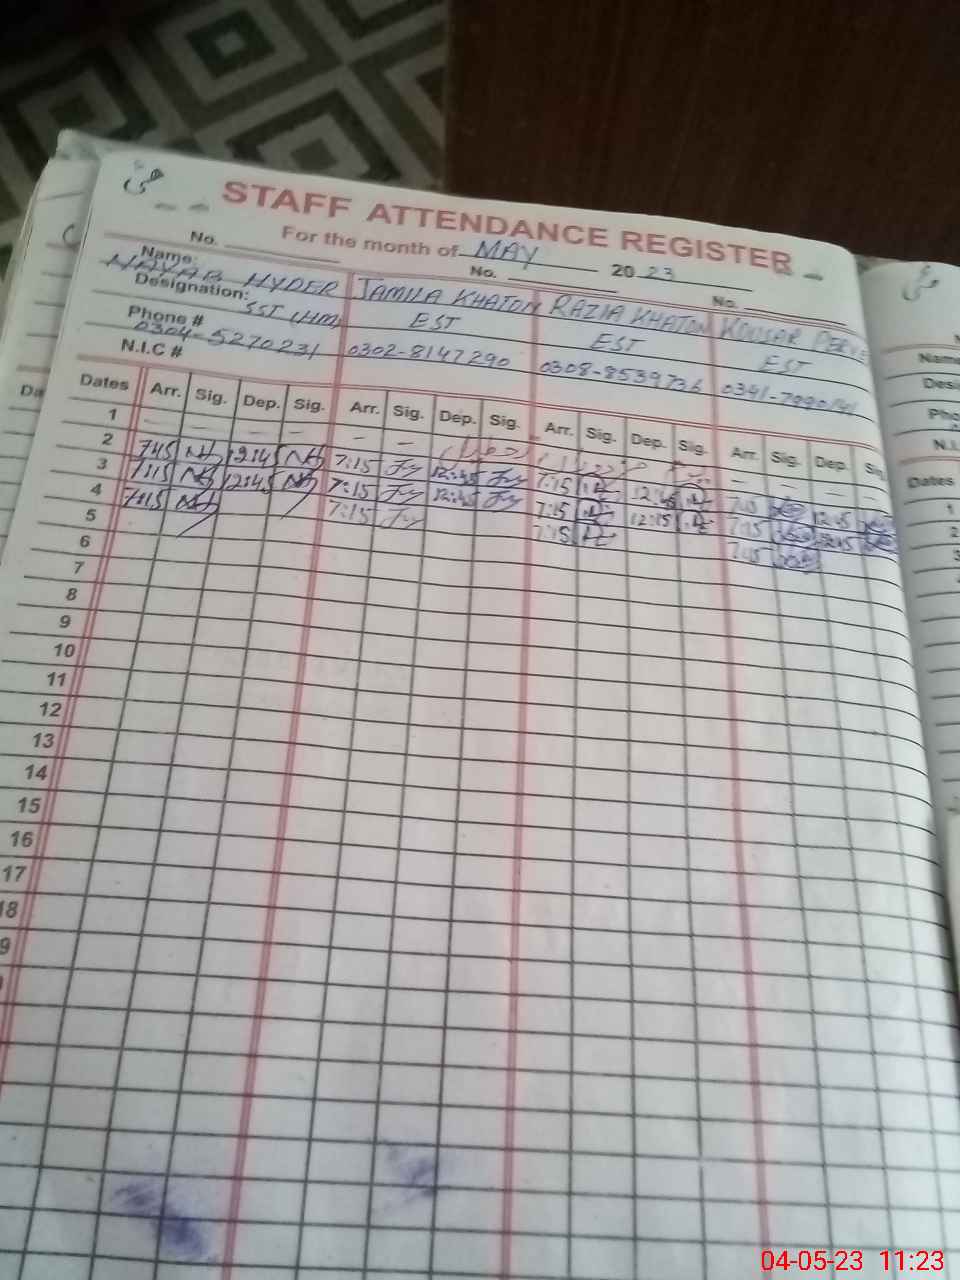 می
STAFF ATTENDANCE REGISTER
For the month of MAY 20 23
No. No. No.
Name: NAYAB HYDER JAMILA KHATON RAZIA KHATON KOUSAR
Designation: SST (HM) EST EST EST
Phone # 0304-5270231 0302-8147290 0308-8539736
N.I.C #
Dates Arr. Sig. Dep. Sig. Arr. Sig. Dep. Sig. Arr. Sig. Dep. Sig. Arr. Sig. Dep.
1 – – – – – – – – –
2 7:15 12:45 7:15 12:45 7:15 12:45 7:15 12:45
3 7:15 12:45 7:15 12:45 7:15 12:15 7:15 12:45
4 7:15 7:15 7:15 7:15
5
6
7
8
9
10
11
12
13
14
15
16
17
18
9
Name
Desi
Pho
N.I.
Dates
1
2
3
Da
04-05-23 11:23